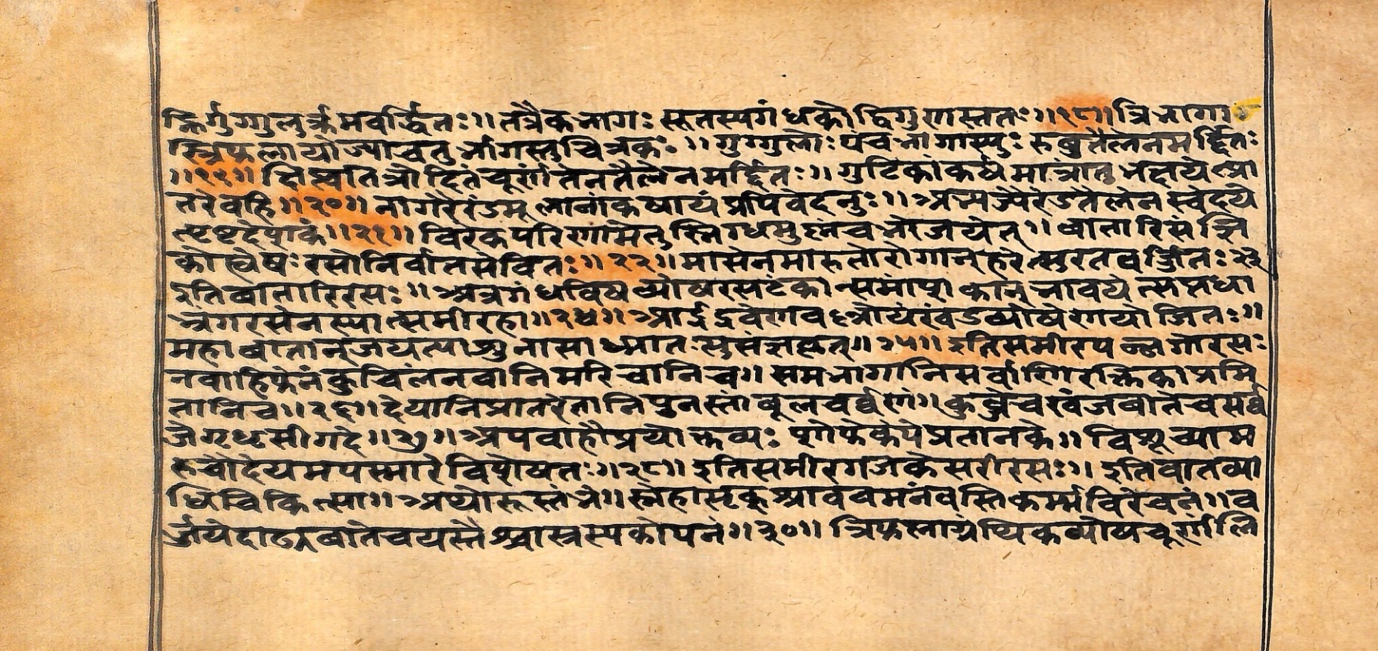 ह्निर्गुग्गुलुर्क्रमवर्द्धितः॥ तत्रैकभागः सूतस्य गंधको द्विगुणस्ततः॥१८॥ त्रिभागा
स्त्रिफलायोज्याचतुर्भागस्तुचित्रकः॥ गुग्गुलोः पंचभागास्युः रुबुतैलेनमर्द्दितः
॥१९॥ तेनतैलेनमर्द्दितः॥ गुटिकांकर्षमात्रांतु भक्षयेत्प्रा
तरेवहि॥२०॥ नागरैरंडमूलानांकषायंप्रपिबेदनुः॥ अभ्यज्यैरंडतैलेनस्वेदये
त्पृष्टदेशकं॥२१॥ विरेकेपरिणामेतुस्निग्धमुष्नंचभोजयेत्॥ वातारिसंज्ञि
कोह्येषः रसोनिर्वातसेवितः॥२२॥ मासेनमारुतोरोगान्हरेत्सुरतवर्ज्जितः २३
इतिवातारिरसः॥ अभ्रगंधविषव्योषरसटंका न्समांशकान् भावये त्सप्तधा
भृंगरसेनस्यात्समीरहा॥२४॥ आर्द्रद्रवेण
महावातान्जयत्याशुनासाध्मातः सुसंज्ञकृत्॥२५॥ इतिसमीरपन्नगोरसः
नवाहिफेनंकुचिलंनवानिमरिचानिच॥ समभागानिसर्वाणिरक्तिकाप्रमि
तानिच॥२६॥ देयानिप्रातरेतानिपुनस्तांबूलचर्व्वणं॥ कुब्जेचखंजवातेचसर्व
जेगृध्रसीगदे॥२७॥ अपबाहौप्रयोक्तव्यः प्रतानके॥ विशूच्याम
रुचौदेयमपस्मारेविशेषतः॥२८॥ इतिसमीरगजकेसरीरसः॥ इतिवातव्या
धिचिकित्सा॥ अथोरुस्तंभे॥ स्नेहासृक् श्राववमनंवस्तिकर्म्मविरेचनं॥ व
र्जयेदाढ्यवातेच ॥३०॥ त्रिफलाग्रंथिकव्योषचूर्णंलि